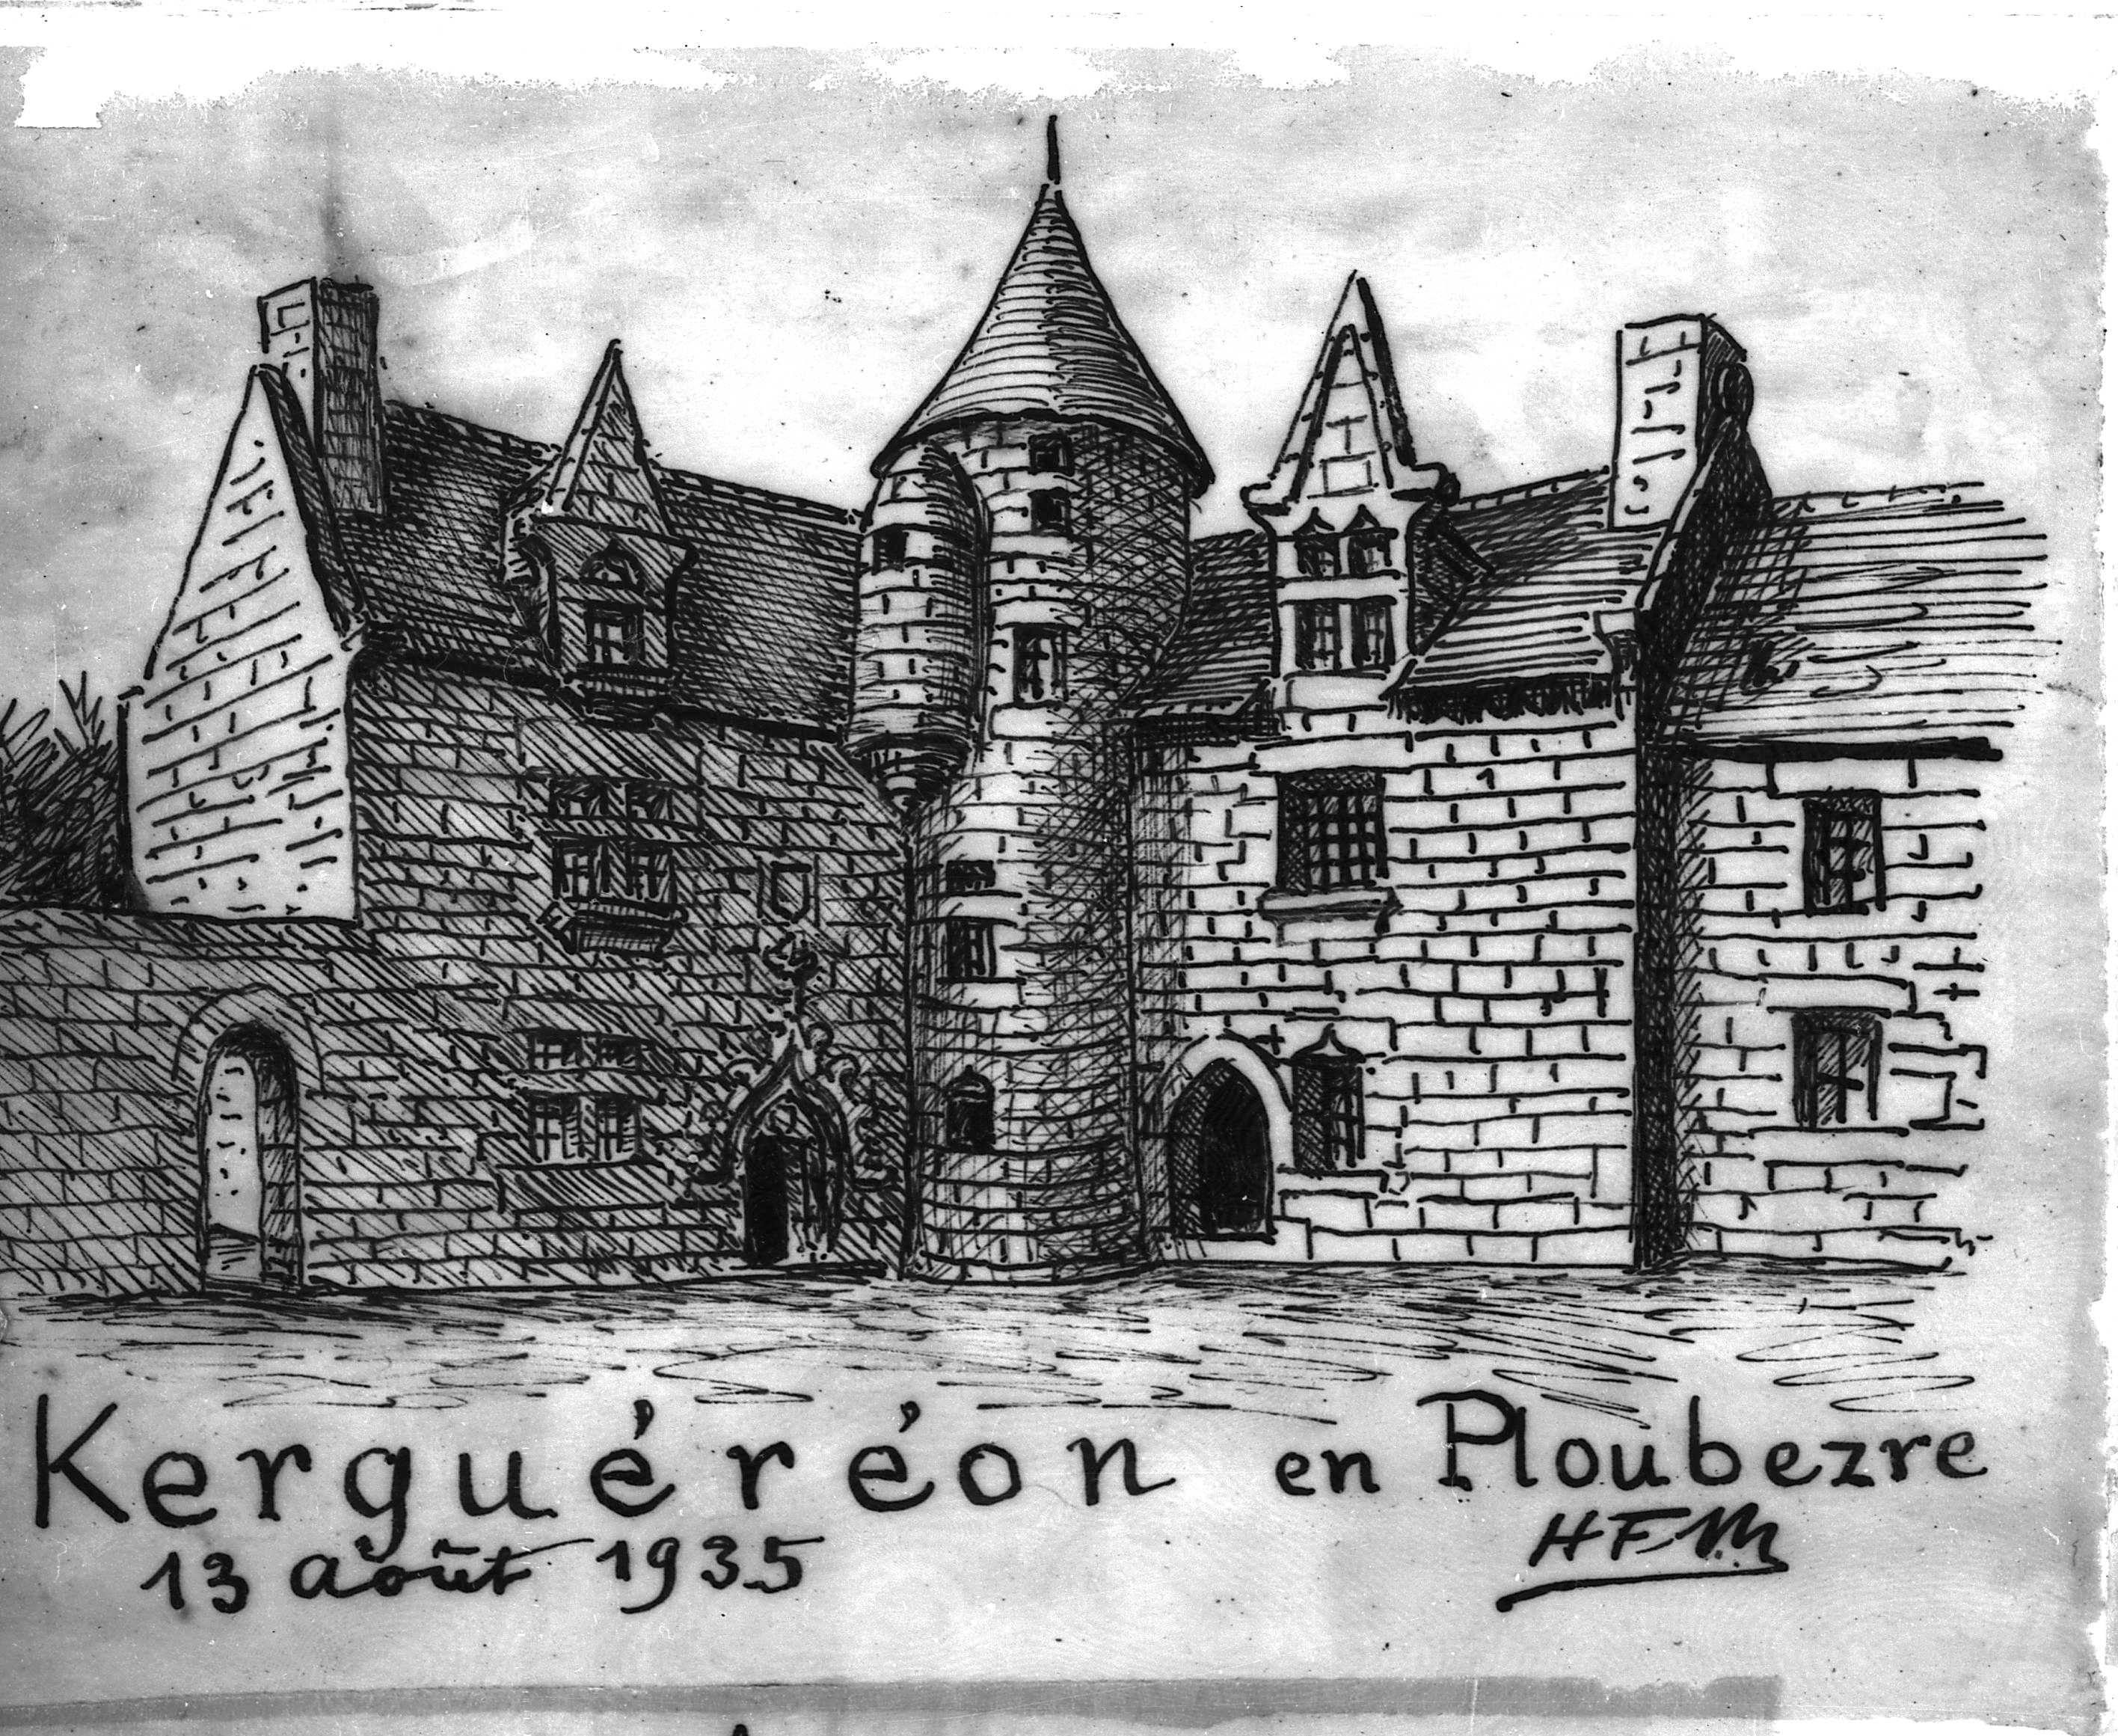 Kerguéréon en Ploubezre
13 août 1935